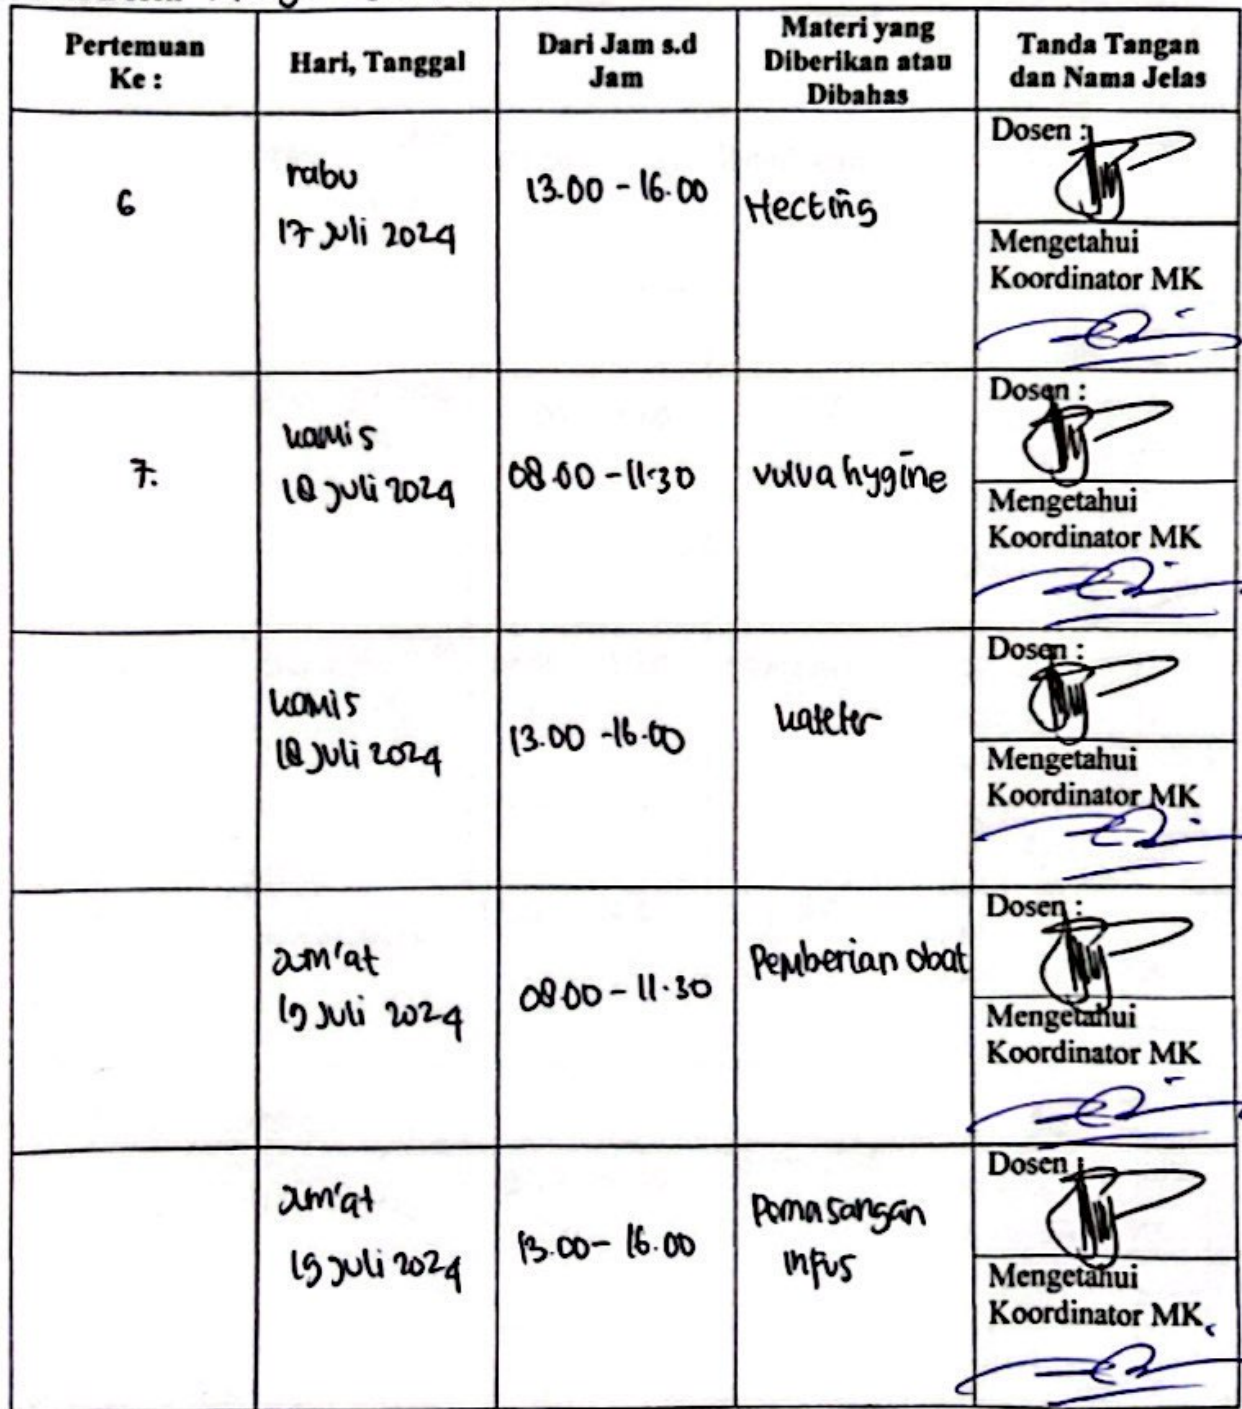 Pertemuan
Ke :
Hari, Tanggal
Dari Jam s.d
Jam
Materi yang
Diberikan atau
Dibahas
Tanda Tangan
dan Nama Jelas
6
rabu
17 Juli 2024
13.00 - 16.00
Hecting
Dosen :
Mengetahui
Koordinator MK
7.
kamis
18 Juli 2024
08.00 - 11.30
vulva hygine
Dosen :
Mengetahui
Koordinator MK
kamis
18 Juli 2024
13.00 - 16.00
kateter
Dosen :
Mengetahui
Koordinator MK
Jum'at
19 Juli 2024
08.00 - 11.30
Pemberian obat
Dosen :
Mengetahui
Koordinator MK
Jum'at
19 Juli 2024
13.00 - 16.00
Pemasangan
infus
Dosen :
Mengetahui
Koordinator MK